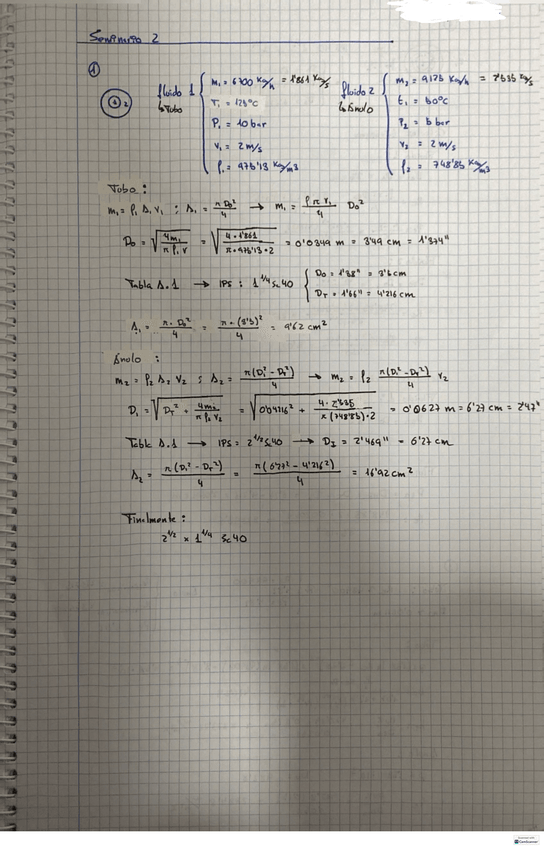 Seminario 2
①
① 2
fluido 1
↳ Tubo
m₁ = 6700 Kg/h = 1'861 Kg/s
T₁ = 125°C
P₁ = 10 bar
v₁ = 2 m/s
ρ₁ = 975'13 Kg/m3
fluido 2
↳ Ánulo
m₂ = 9175 Kg/h =
t₁ = 60°C
P₂ = 5 bar
v₂ = 2 m/s
ρ₂ = 748'85 Kg/m3
Tubo :
m₁ = ρ₁ S₁ v₁ ; S₁ = π D₀² / 4 → m₁ = ρ π v₁ / 4 D₀²
D₀ = √(4 m₁ / π ρ₁ v) = √(4 · 1'861 / π · 975'13 · 2) = 0'0349 m = 3'49 cm = 1'374"
Tabla A.1 → IPS : 1 1/4 Sc 40
D₀ = 1'38" = 3'5 cm
D_T = 1'66" = 4'216 cm
S₁ = π · D₀² / 4 = π · (3'5)² / 4 = 9'62 cm²
Ánulo :
m₂ = ρ₂ S₂ v₂ ; S₂ = π (D₁² − D_T²) / 4 → m₂ = ρ₂ π (D₁² − D_T²) / 4 v₂
D₁ = √(D_T² + 4 m₂ / π ρ₂ v₂) = √(0'04216² + 4 · / π (748'85) · 2) = 0'0627 m = 6'27 cm = 2'47"
Tabla A.1 → IPS = 2 1/2 Sc 40 → D_I = 2'469" = 6'27 cm
S₂ = π (D₁² − D_T²) / 4 = π (6'27² − 4'216²) / 4 = 16'92 cm²
Finalmente :
2 1/2 × 1 1/4 Sc 40
CamScanner